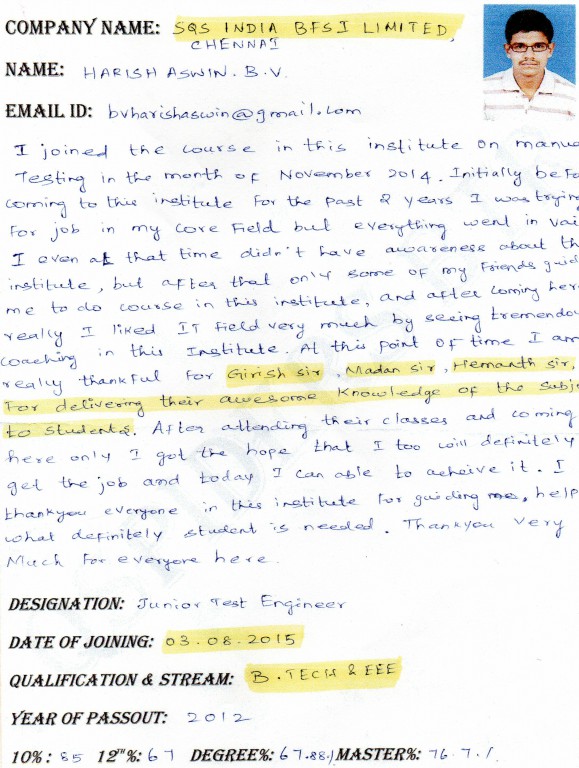 COMPANY NAME: SQS INDIA BFSI LIMITED,
CHENNAI
NAME: HARISH ASWIN. B. V.
EMAIL ID: bvharishaswin@gmail.com
I joined the course in this institute on manua
Testing in the month of November 2014. Initially befo
coming to this institute for the past 2 years I was trying
for job in my core field but everything went in vai
I even at that time didn't have awareness about th
institute, but after that only some of my friends guid
me to do course in this institute, and after coming here
really I liked IT field very much by seeing tremendou
coaching in this Institute. At this point of time I am
really thankful for Girish sir, Madan sir, Hemanth sir,
For delivering their awesome knowledge of the subj
to students. After attending their classes and coming
here only I got the hope that I too will definitely
get the job and today I can able to acheive it. I
thankyou everyone in this institute for guiding me, help
what definitely student is needed. Thankyou very
Much for everyone here.
DESIGNATION: Junior Test Engineer
DATE OF JOINING: 03.08.2015
QUALIFICATION & STREAM: B.TECH & EEE
YEAR OF PASSOUT: 2012
10%: 85 12TH%: 67 DEGREE%: 67.88% MASTER%: 76.7%